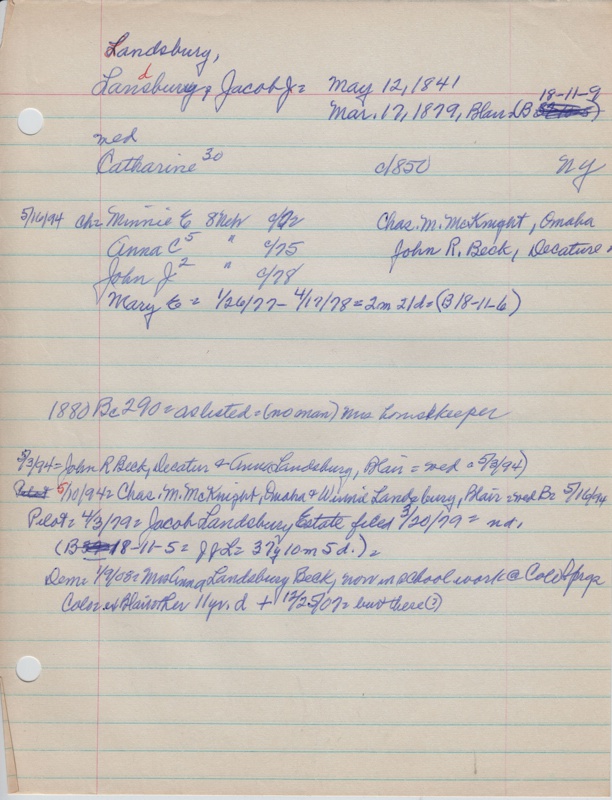 Landsbury,
Landsbury, Jacob J = May 12, 1841
18-11-9
Mar. 17, 1879, Blair (B
med
Catharine 30 c/850 NY
5/16/94 ch = Minnie E 8 Neb c/72 Chas. M. McKnight, Omaha
Anna C 5 " c/75 John R. Beck, Decature
John J 2 " c/78
Mary E = 1/26/77 - 4/17/78 = 2m 21d = (B 18-11-6)
1880 Bc 290 = as listed = (no man) Mrs housekeeper
5/3/94 = John R Beck, Decatur & Anna Landsburg, Blair = med = 5/3/94)
5/10/94 = Chas. M. McKnight, Omaha & Landsburg, Blair = med B = 5/16/94
Pilot = 4/3/79 = Jacob Landsbury Estate filed 3/20/79 = nd.
(B 18-11-5 = JJL = 37y 10m 5d.) =
Dem = 1/9/08 = Mrs Anna Landsbury Beck, now in school work @
Blair other 11 yr. d + 12/25/07 = but these (?)